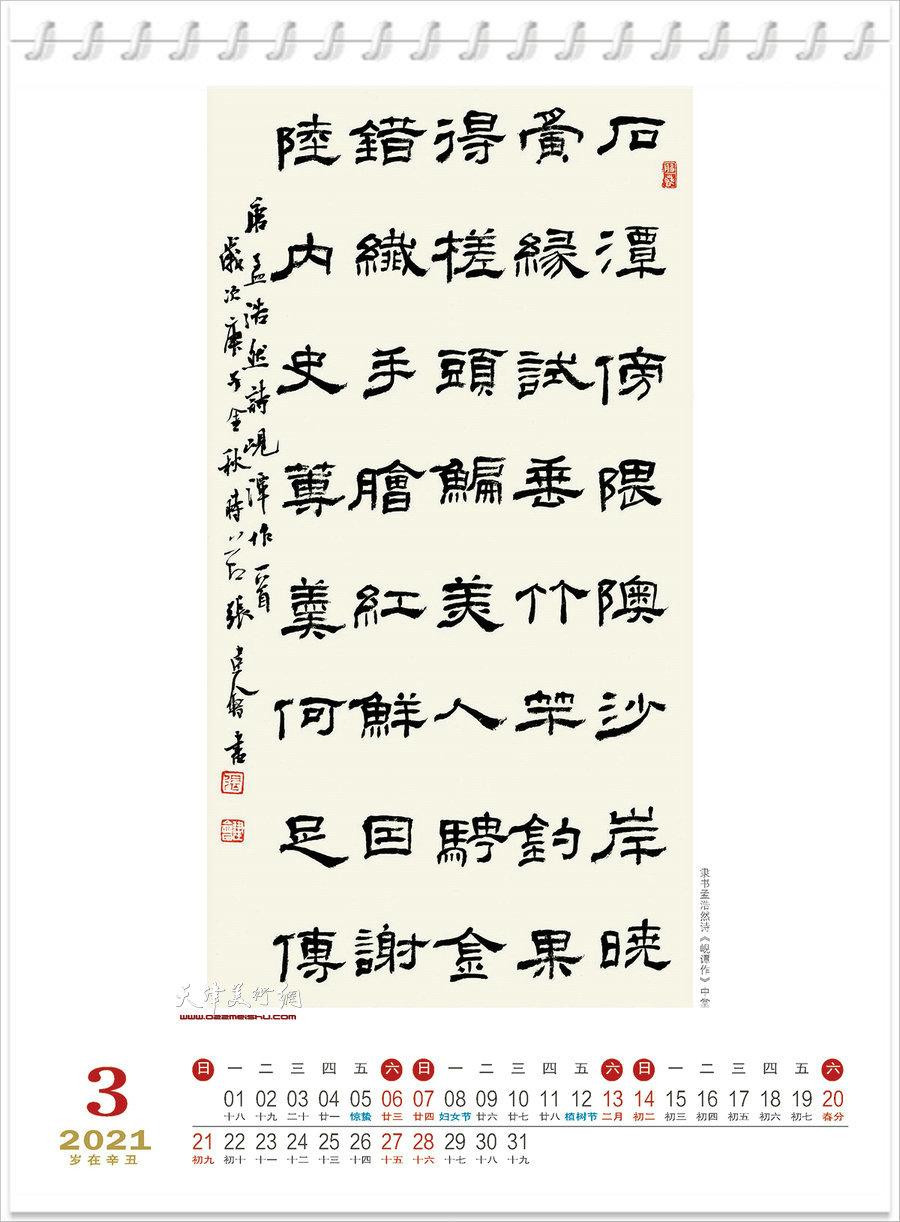 石潭傍隈隩沙岸曉
夤緣試垂竹竿釣果
得槎頭鯿美人騁金
錯纖手膾紅鮮因謝
陸内史蓴羹何足傳
唐孟浩然詩峴潭作一首
歲次庚子金秋時節張建會書
隶书孟浩然诗《岘潭作》中堂
天津美術網
www.022meishu.com
3
2021
岁在辛丑
日 一 二 三 四 五 六 日 一 二 三 四 五 六 日 一 二 三 四 五 六
01 02 03 04 05 06 07 08 09 10 11 12 13 14 15 16 17 18 19 20
十八 十九 二十 廿一 惊蛰 廿三 廿四 妇女节 廿六 廿七 廿八 植树节 二月 初二 初三 初四 初五 初六 初七 春分
21 22 23 24 25 26 27 28 29 30 31
初九 初十 十一 十二 十三 十四 十五 十六 十七 十八 十九